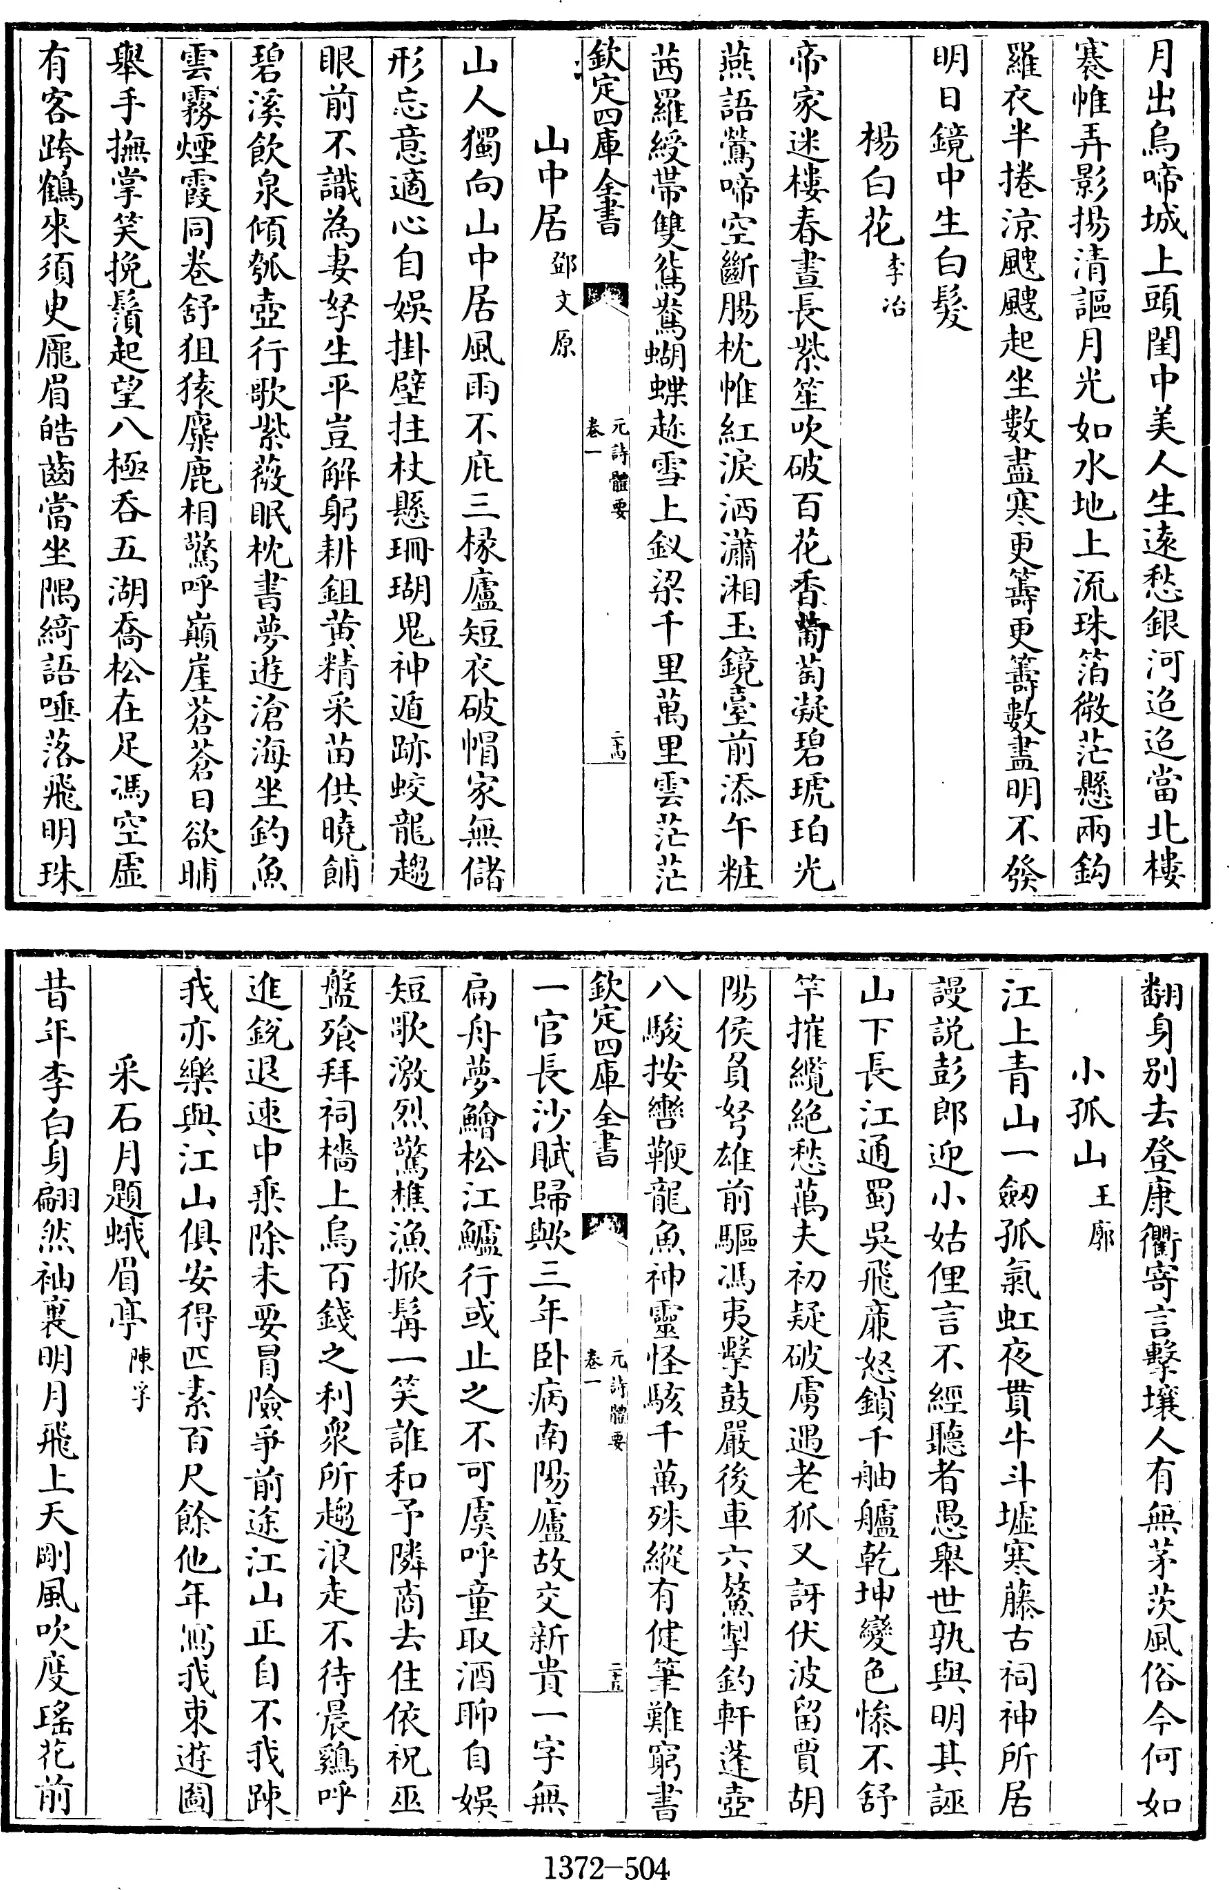 月出烏啼城上頭閨中美人生遠愁銀河迢迢當北樓
褰帷弄影揚清謳月光如水地上流珠箔微茫懸兩鈎
羅衣半捲涼颸颸起坐數盡寒更籌更籌數盡明不發
明日鏡中生白髮
楊白花李冶
帝家迷樓春晝長紫笙吹破百花香葡萄凝碧琥珀光
燕語鶯啼空斷腸枕帷紅淚洒瀟湘玉鏡臺前添午粧
茜羅綬帶雙鴛鴦蝴蝶趂雪上釵梁千里萬里雲茫茫
欽定四庫全書
元詩體要
卷一
二十四
山中居鄧文原
山人獨向山中居風雨不庇三椽廬短衣破帽家無儲
形忘意適心自娱掛壁拄杖懸珊瑚鬼神遁跡蛟龍趨
眼前不識為妻孥生平豈解躬耕鉏黄精采苗供曉餔
碧溪飲泉傾瓠壺行歌紫薇眠枕書夢遊滄海坐釣魚
雲霧煙霞同卷舒狙猿麋鹿相驚呼巔崖蒼蒼日欲晡
舉手撫掌笑挽鬚起望八極吞五湖喬松在足馮空虛
有客跨鶴來須臾龐眉皓齒當坐隅綺語唾落飛明珠
翻身别去登康衢寄言擊壤人有無茅茨風俗今何如
小孤山王廓
江上青山一劒孤氣虹夜貫牛斗墟寒藤古祠神所居
謾説彭郎迎小姑俚言不經聽者愚舉世孰與明其誣
山下長江通蜀吳飛廉怒鎖千舳艫乾坤變色慘不舒
竿摧纜絶愁萬夫初疑破虜遇老狐又訝伏波留賈胡
陽侯負弩雄前驅馮夷擊鼓嚴後車六鰲掣釣軒蓬壺
八駿按轡鞭龍魚神靈怪駭千萬殊縱有健筆難窮書
欽定四庫全書
元詩體要
卷一
二十五
一官長沙賦歸歟三年卧病南陽廬故交新貴一字無
扁舟夢鱠松江鱸行或止之不可虞呼童取酒聊自娱
短歌激烈驚樵漁掀髯一笑誰和予隣商去住依祝巫
盤飱拜祠檣上烏百錢之利衆所趨浪走不待晨鷄呼
進鋭退速中乘除未要冒險爭前途江山正自不我踈
我亦樂與江山俱安得匹素百尺餘他年寫我東遊圖
采石月題蛾眉亭陳孚
昔年李白身翩然袖裏明月飛上天剛風吹度瑤花前
1372-504